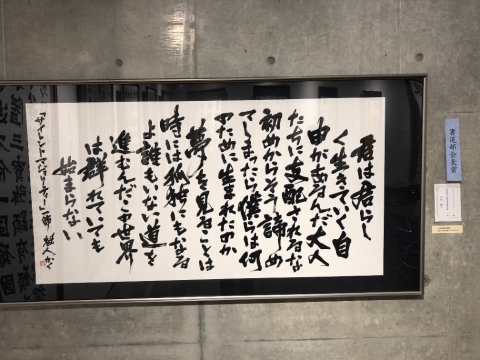 君は君らし
く生きていく自
由があるんだ大人
たちに支配されるな
初めからそう諦め
てしまったら僕らは何
のために生まれたのか
夢を見ることは
時には孤独にもなる
よ誰もいない道を
進むんだこの世界
は群れていても
始まらない
「サイレントマジョリティー」一節
書道部会長賞